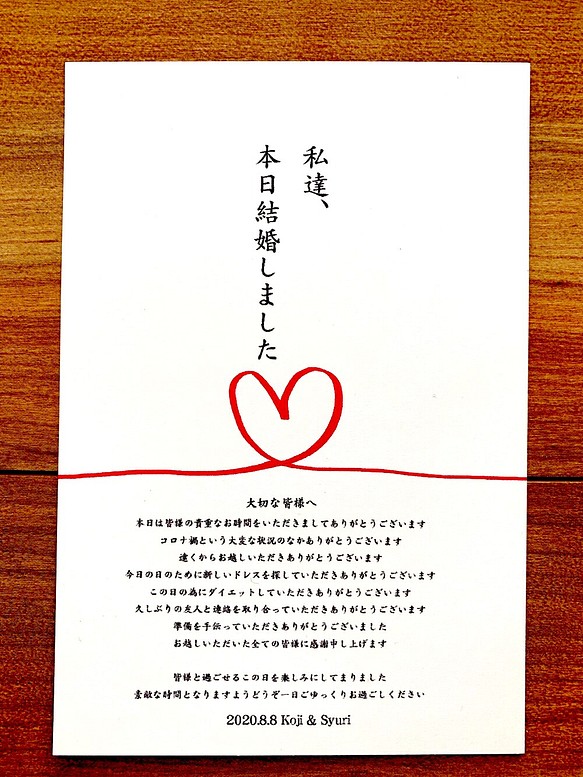 私達、
本日結婚しました
大切な皆様へ
本日は皆様の貴重なお時間をいただきましてありがとうございます
コロナ禍という大変な状況のなかありがとうございます
遠くからお越しいただきありがとうございます
今日の日のために新しいドレスを探していただきありがとうございます
この日の為にダイエットしていただきありがとうございます
久しぶりの友人と連絡を取り合っていただきありがとうございます
準備を手伝っていただきありがとうございました
お越しいただいた全ての皆様に感謝申し上げます
皆様と過ごせるこの日を楽しみにしてまりました
素敵な時間となりますようどうぞ一日ごゆっくりお過ごしください
2020.8.8 Koji & Syuri